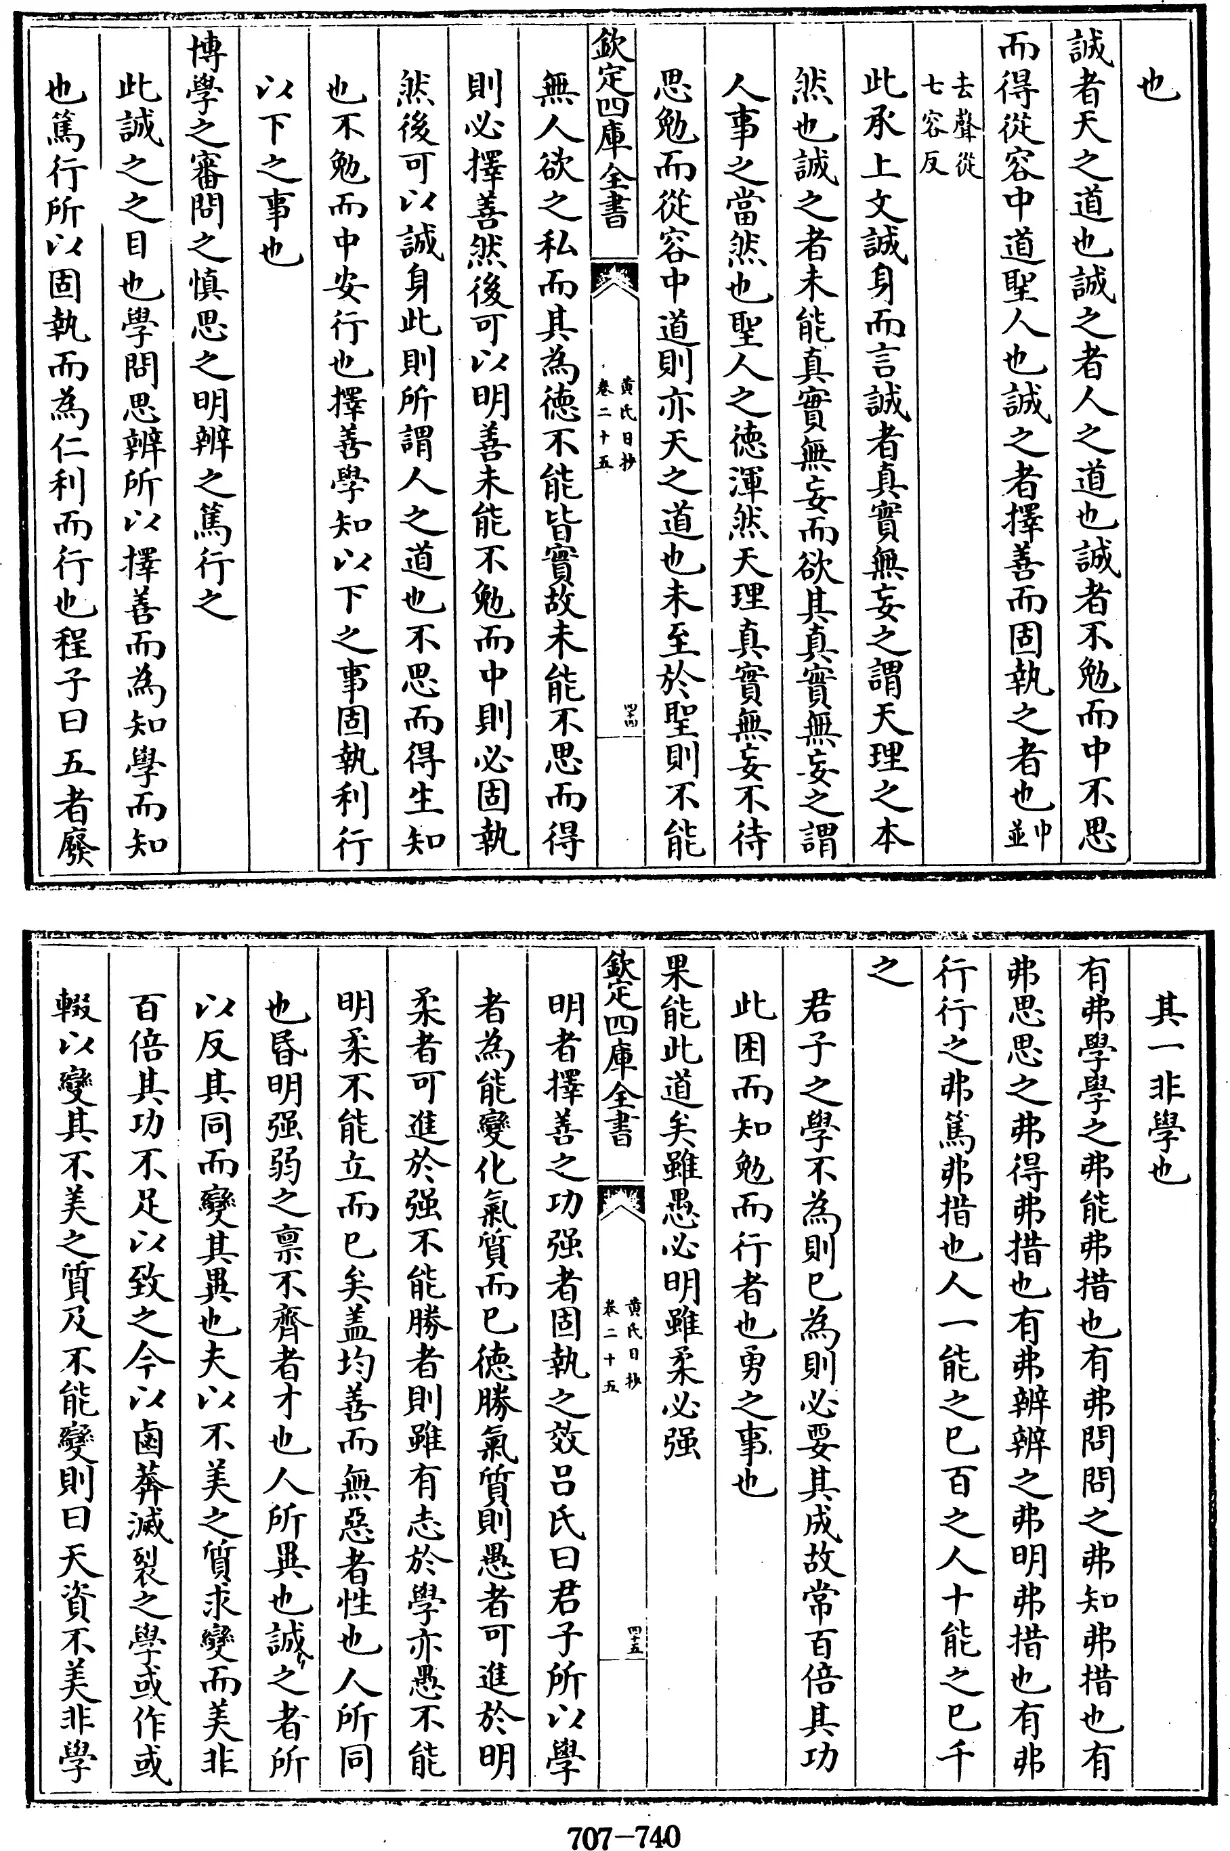 也
誠者天之道也誠之者人之道也誠者不勉而中不思
而得從容中道聖人也誠之者擇善而固執之者也中並
去聲從七容反
此承上文誠身而言誠者真實無妄之謂天理之本
然也誠之者未能真實無妄而欲其真實無妄之謂
人事之當然也聖人之德渾然天理真實無妄不待
思勉而從容中道則亦天之道也未至於聖則不能
欽定四庫全書
黄氏日抄
卷二十五
四十四
無人欲之私而其為德不能皆實故未能不思而得
則必擇善然後可以明善未能不勉而中則必固執
然後可以誠身此則所謂人之道也不思而得生知
也不勉而中安行也擇善學知以下之事固執利行
以下之事也
博學之審問之慎思之明辨之篤行之
此誠之之目也學問思辨所以擇善而為知學而知
也篤行所以固執而為仁利而行也程子曰五者廢
其一非學也
有弗學學之弗能弗措也有弗問問之弗知弗措也有
弗思思之弗得弗措也有弗辨辨之弗明弗措也有弗
行行之弗篤弗措也人一能之已百之人十能之已千
之
君子之學不為則已為則必要其成故常百倍其功
此困而知勉而行者也勇之事也
果能此道矣雖愚必明雖柔必强
欽定四庫全書
黄氏日抄
卷二十五
四十五
明者擇善之功强者固執之效吕氏曰君子所以學
者為能變化氣質而已德勝氣質則愚者可進於明
柔者可進於强不能勝者則雖有志於學亦愚不能
明柔不能立而已矣盖均善而無惡者性也人所同
也昏明强弱之禀不齊者才也人所異也誠之者所
以反其同而變其異也夫以不美之質求變而美非
百倍其功不足以致之今以鹵莽滅裂之學或作或
輟以變其不美之質及不能變則曰天資不美非學
707-740